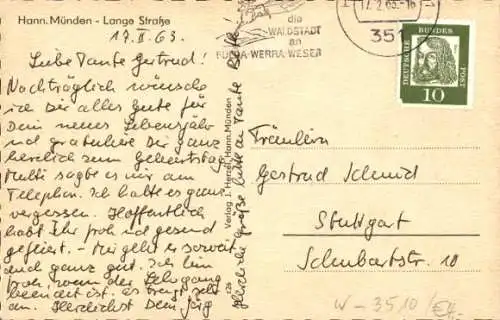 Hann. Münden - Lange Straße
17.II.63.
Liebe Tante Gertrud!
Nachträglich wünsche
ich Dir alles Gute für
Dein neues Lebensjahr
und gratuliere Dir ganz
herzlich zum Geburtstag.
Mutti sagte es mir am
Telephon. Ich hatte es ganz
vergessen. Hoffentlich
hast Ihr froh und gesund
gefeiert. - Mir geht es soweit
auch ganz gut. Ich bin
froh, wenn der Lehrgang
beendet ist. Es
an. Herzlichst Dein Jörg
Herzliche Grüße bitte an Tante
Verlag J. Herzel, Hann. Münden
die
WALDSTADT
an
FULDA-WERRA-WESER
17.2.63.-16
351
DEUTSCHE BUNDES POST
10
Fräulein
Gertrud Schmid
Stuttgart
Schubartstr. 10
W-3510/